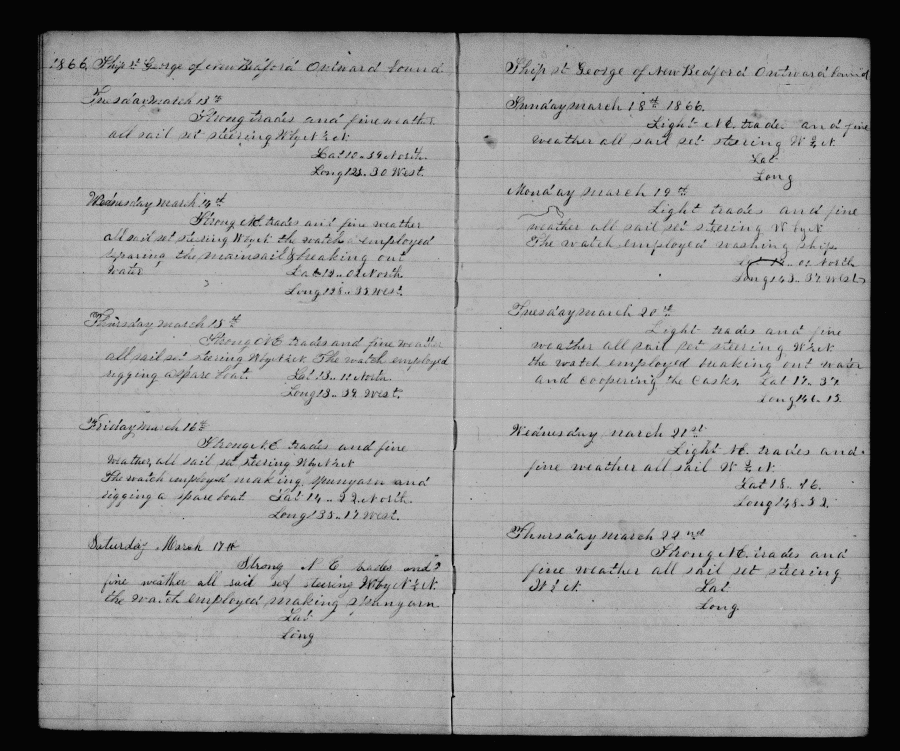 1866 Ship St George of New Bedford Outward bound
Tuesday march 13th
Strong trades and fine weather
all sail set stering WbyN½N
Lat 12.. 39 North
Long 123.. 30 West.
Wednesday march 14th
Strong NE trades and fine weather
all sail set stering WbyN the watch employed
the mainsail & breaking out
water Lat 12.. 02 North
Long 128.. 33 West.
Thursday march 15th
Strong NE trades and fine weather
all sail set stering WbyN½N The watch employed
rigging a spare boat. Lat 13.. 12 North
Long 13 .. 39 West.
Friday march 16th
Strong NE trades and fine
weather, all sail set stering WbyN½N
The watch employed making spunyarn and
rigging a spare boat Lat 14 .. 22 North.
Long 138.. 17 West.
Saturday March 17th
Strong N E trades and
fine weather all sail set steering WbyN½N
the watch employed making spunyarn
Lat
Long
Ship St George of New Bedford Outward bound
Sunday march 18th 1866.
Light NE. trades and fine
weather all sail set steering W½N
Lat
Long
Monday march 19th
Light trades and fine
weather all sail set steering WbyN
The watch employed washing ship
.. 02 North
Long 143.. 37 West
Tuesday march 20th
Light trades and fine
weather all sail set stering W½N
the watch employed breaking out water
and coopering the Casks. Lat 17.. 37
Long 146.. 13.
Wednesday march 21st
Light NE. trades and
fine weather all sail W½N.
Lat 18.. 26.
Long 148.. 32.
Thursday march 22nd
Strong NE. trades and
fine weather all sail set steering
W½N. Lat
Long